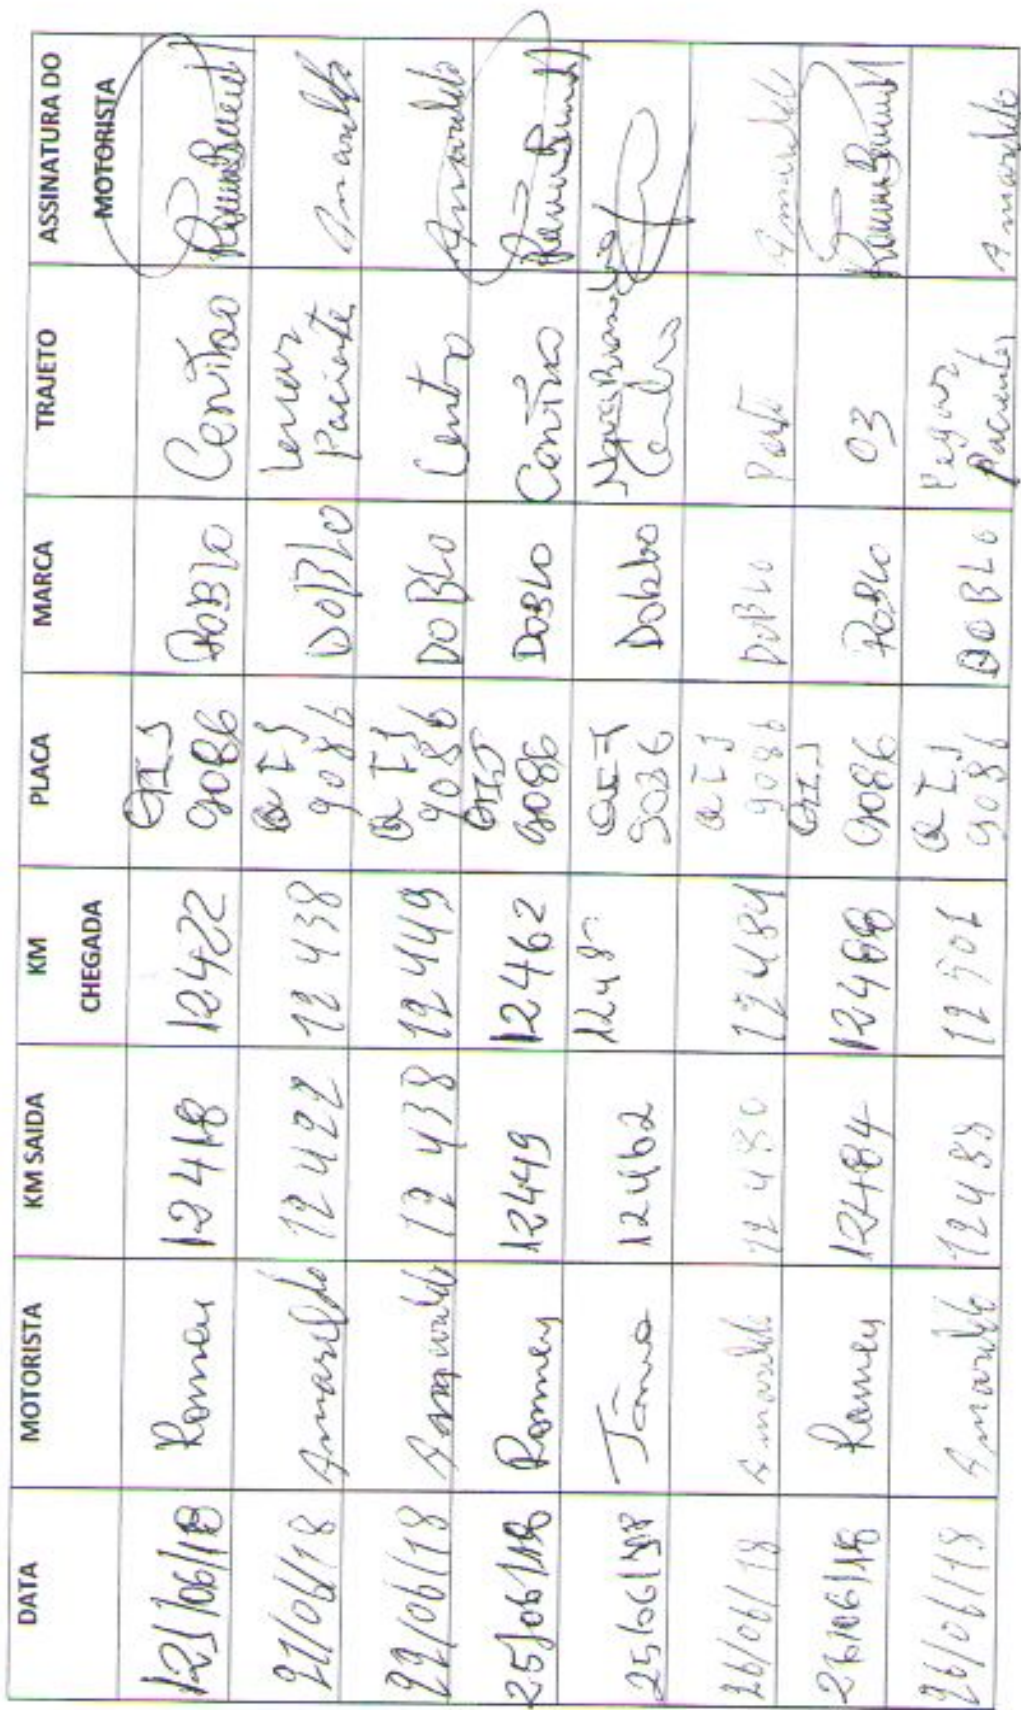 DATA MOTORISTA KM SAIDA KM CHEGADA PLACA MARCA TRAJETO ASSINATURA DO MOTORISTA
/06/18 Romeu 12418 12422 QIJ 9086 DOBLO Centro
21/06/18 Amarildo 12422 12438 QIJ 9086 DOBLO Levar Paciente Amarildo
22/06/18 Amarildo 12438 12449 QIJ 9086 DOBLO Centro Amarildo
25/06/18 Romeu 12449 12462 QIJ 9086 DOBLO Centro
25/06/18 12462 1248 QIJ 9086 Doblo
26/06/18 Amarildo 12480 12484 QIJ 9086 DOBLO Amarildo
26/06/18 Romeu 12484 12488 QIJ 9086 DOBLO 03
26/06/18 Amarildo 12488 12501 QIJ 9086 DOBLO Pegar Pacientes Amarildo